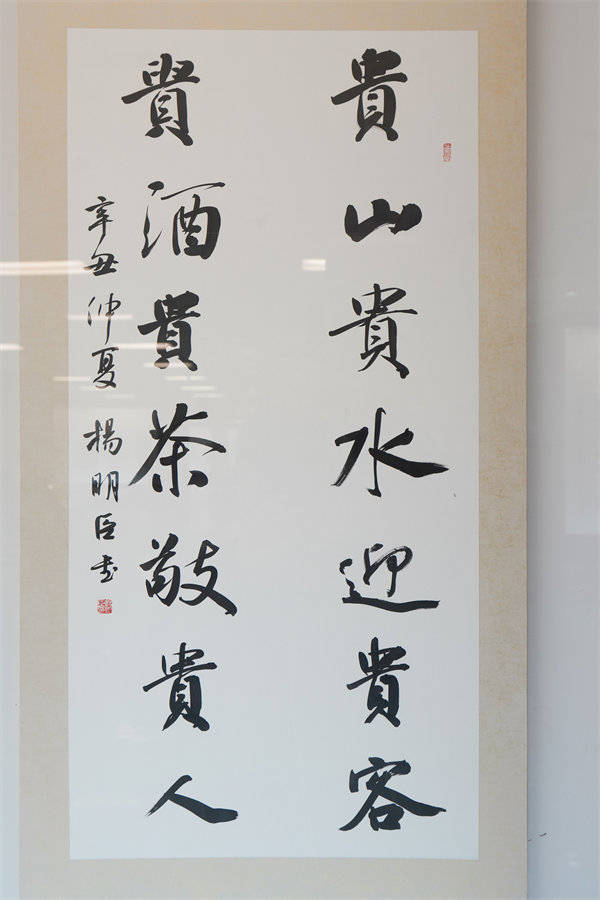 貴山貴水迎貴客
貴酒貴茶敬貴人
辛丑仲夏 楊明臣书